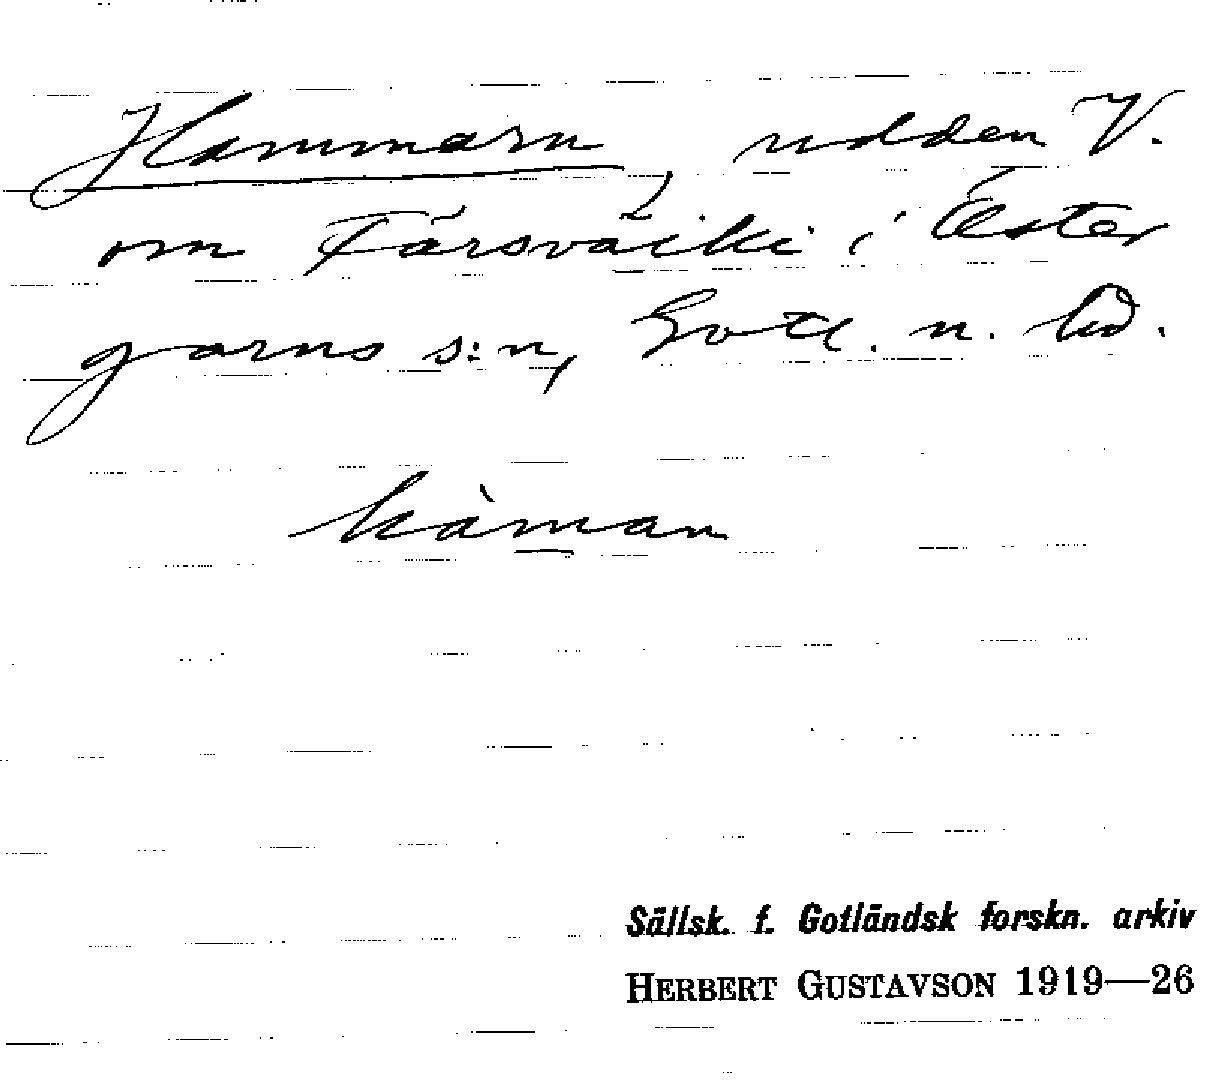 Hammarn, udden V.
om Färsväiki i Öster
garns s:n, Gotl. n. hd.
hàman
Sällsk. f. Gotländsk forskn. arkiv
HERBERT GUSTAVSON 1919—26